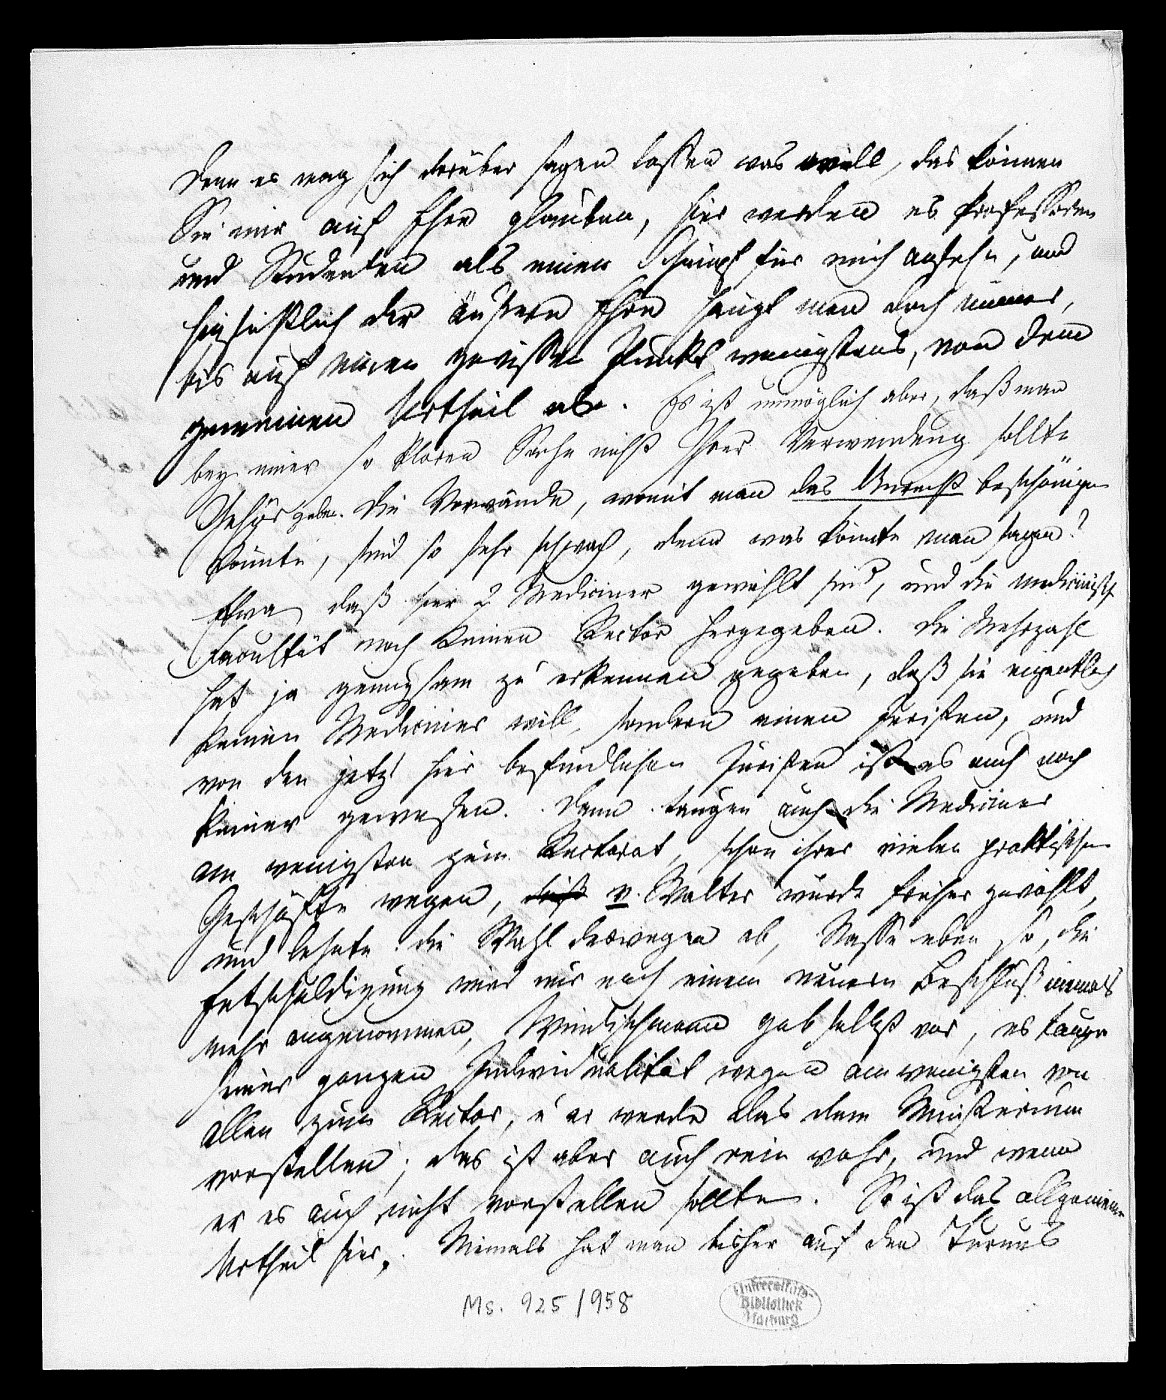 Denn es mag sich darüber sagen lassen was will, das können
Sie mir auf Ehre glauben, hier werden es Professoren
und Studenten als einen Schimpf für mich ansehn, und
hinsichtlich der äußern Ehre hängt man doch immer,
bis auf einen gewissen Punkt wenigstens, von dem
gemeinen Urtheil ab. Es ist unmöglich aber, daß man
bey einer so klaren Sache nicht Ihrer Verwendung sollte
Gehör geben. Die Vorwände, womit man das Unrecht beschönigen
könnte, sind so sehr schwach, denn was könnte man sagen?
Etwa daß hier 2 Mediciner gewählt sind, und die medicinische
Facultät noch keinen Rector hergegeben. Die Mehrzahl
hat ja genugsam zu erkennen gegeben, daß sie eigentlich
keinen Mediciner will, sondern einen Juristen, und
von den jetzt hier befindlichen Juristen ist es auch noch
keiner gewesen. Denn taugen auch die Mediciner
am wenigsten zum Rectorat, schon ihrer vielen praktischen
Geschäfte wegen, v. Walter wurde früher gewählt,
und lehnte die Wahl deswegen ab, Nasse eben so, die
Entschuldigung wird nur nach einem neuern Beschluß niemals
mehr angenommen, Windischmann gab selbst vor, es tauge
seiner ganzen Individualität wegen am wenigsten von
allen zum Rector, u er werde das dem Ministerium
vorstellen; das ist aber auch rein wahr, und wenn
er es auch nicht vorstellen sollte. So ist das allgemeine
Urtheil hier. Niemals hat man bisher auf den Turnus
Ms. 925/958
Universitäts-
Bibliothek
Marburg